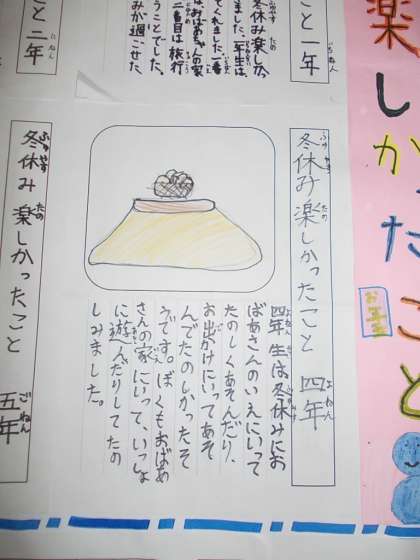 楽しかったこと
こと 一年
冬休み楽しか
ました。一年生は
てくれました一番
はおばあちゃんの家
二番目は旅行
うことでした。
みが過ごせた
こと 二年
冬休み 楽しかったこと 四年
四年生は冬休みにお
ばあさんのいえにいって
たのしくあそんだり、
お出かけにいってあそ
んでたのしかったそ
うです。ぼくもおばあ
さんの家にいって、いっしょ
に遊んだりしてたの
しみました。
冬休み 楽しかったこと 五年